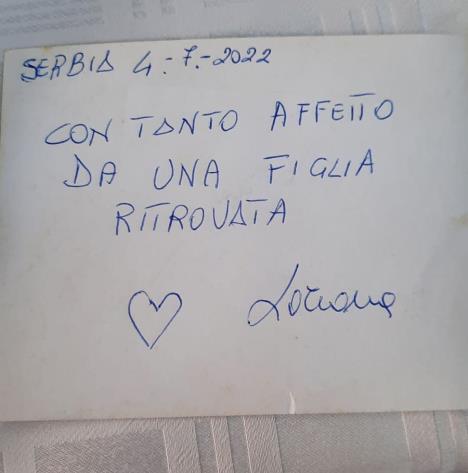 SERBIA 4.-7.-2022
CON TANTO AFFETTO
DA UNA FIGLIA
RITROVATA
Loriana